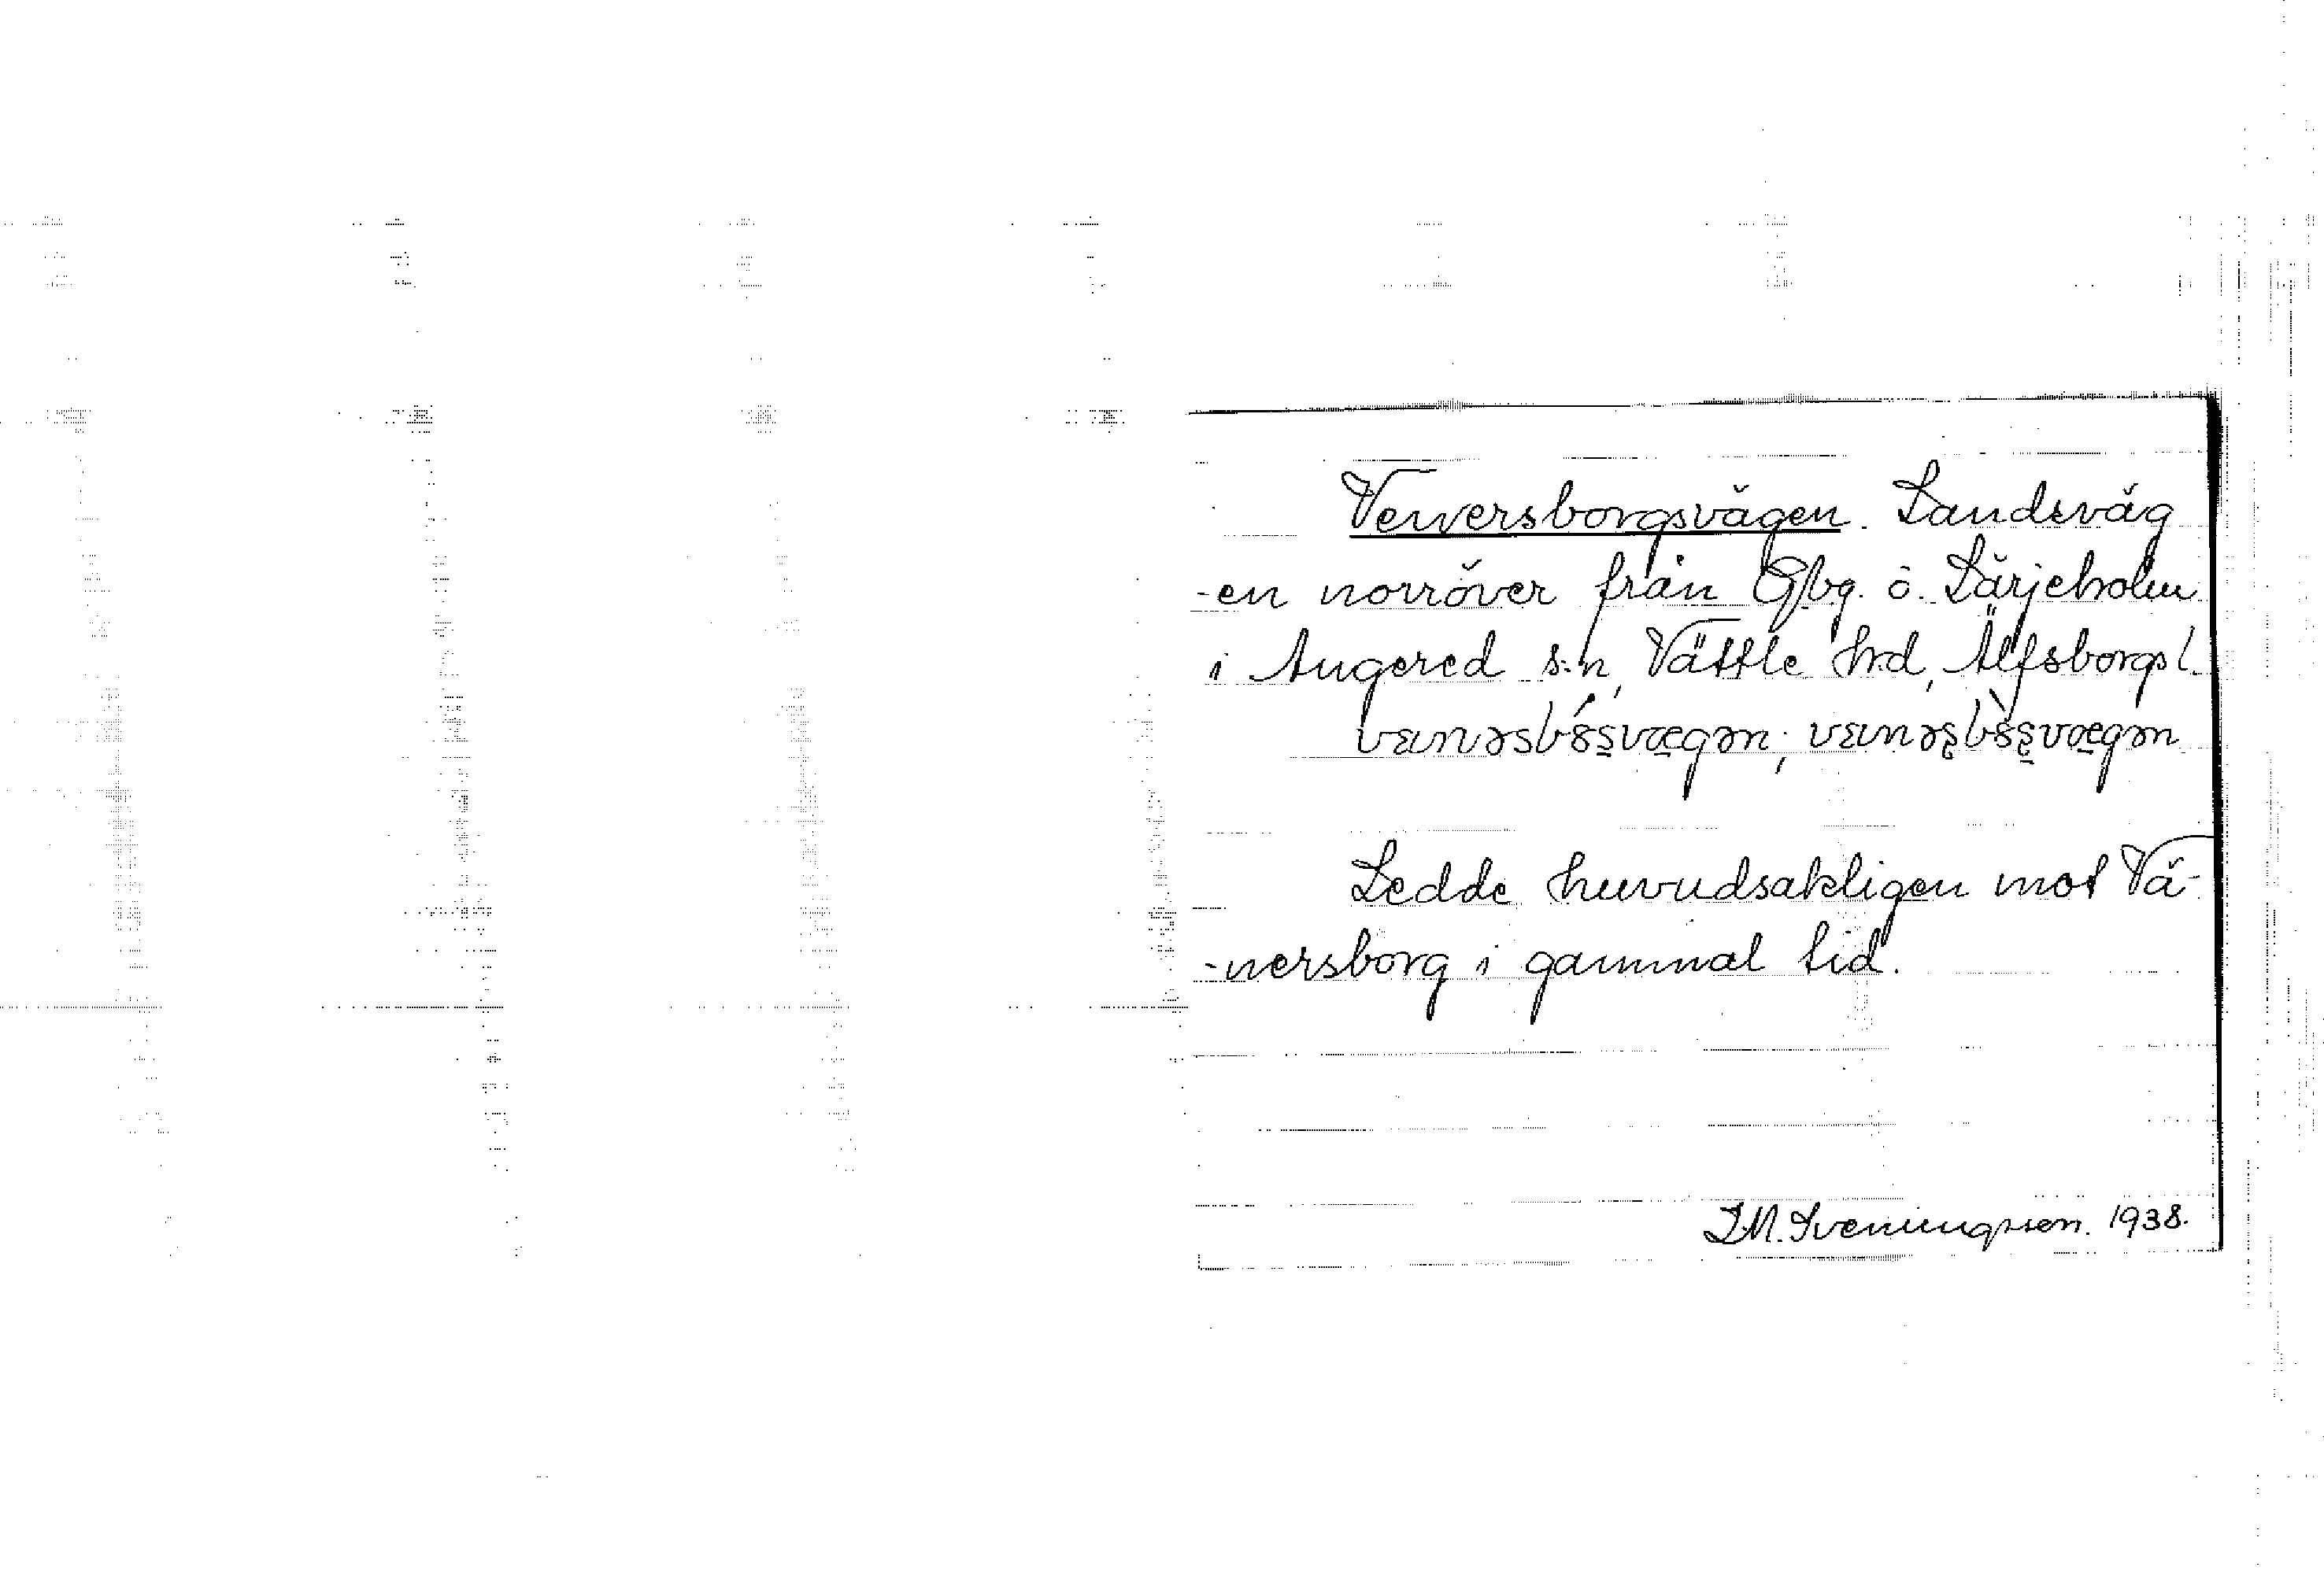 Venersborgsvägen. Landsväg
-en norröver från Gbg. ö. Lärjeholm
i Angered s:n, Vättle h:d, Älfsborgs l.
Ledde huvudsakligen mot Vä-
-nersborg i gammal tid.
I.M. Sveningsson. 1938.